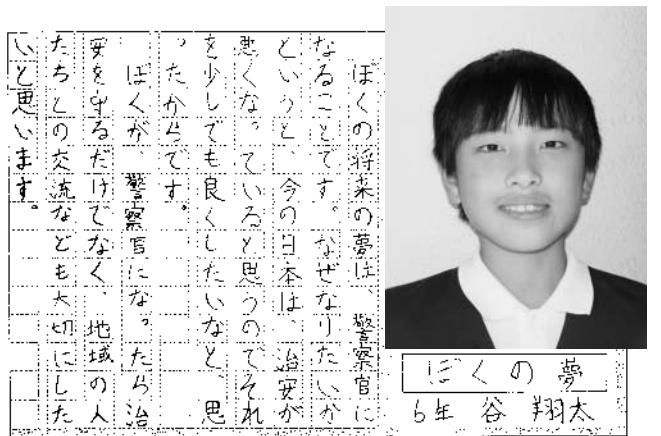 ぼくの夢
6年 谷 翔太
ぼくの将来の夢は、警察官に
なることです。なぜなりたいか
というと、今の日本は、治安が
悪くなっていると思うのでそれ
を少しでも良くしたいなと、思
ったからです。
ぼくが 警察官になったら治
安を守るだけでなく、地域の人
たちとの交流なども大切にした
いと思います。